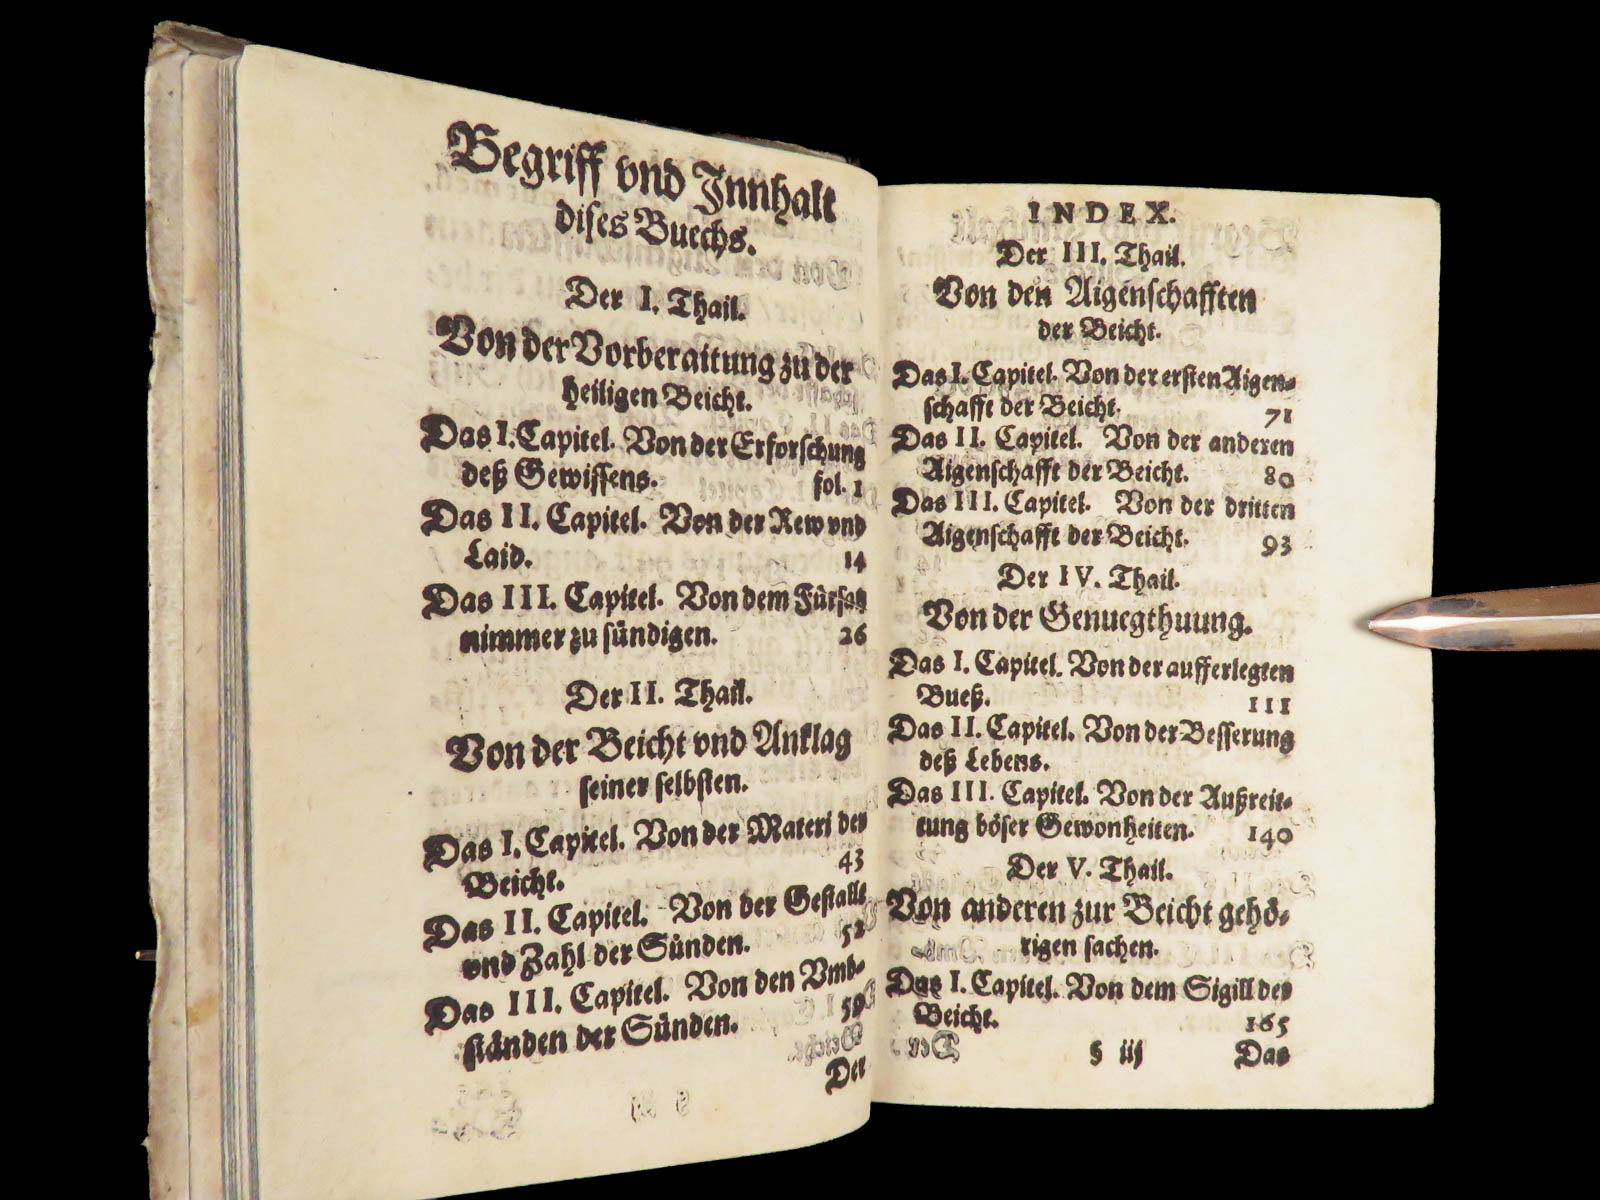 Begriff vnd Innhalt
dises Buechs.
Der I. Thail.
Von der Vorberaitung zu der
heiligen Beicht.
Das I. Capitel. Von der Erforschung
deß Gewissens. fol. 1
Das II. Capitel. Von der Rew vnd
Laid. 14
Das III. Capitel. Von dem Fürsatz
nimmer zu sündigen. 26
Der II. Thail.
Von der Beicht vnd Anklag
seiner selbsten.
Das I. Capitel. Von der Materi der
Beicht. 43
Das II. Capitel. Von der Gestallt
vnd Zahl der Sünden. 52
Das III. Capitel. Von den Vmb-
ständen der Sünden. 59
Der
INDEX.
Der III. Thail.
Von den Aigenschafften
der Beicht.
Das I. Capitel. Von der ersten Aigen-
schafft der Beicht. 71
Das II. Capitel. Von der anderen
Aigenschafft der Beicht. 80
Das III. Capitel. Von der dritten
Aigenschafft der Beicht. 93
Der IV. Thail.
Von der Genuegthuung.
Das I. Capitel. Von der aufferlegten
Bueß. 111
Das II. Capitel. Von der Besserung
deß Lebens.
Das III. Capitel. Von der Außreit-
tung böser Gewonheiten. 140
Der V. Thail.
Von anderen zur Beicht gehö-
rigen sachen.
Das I. Capitel. Von dem Sigill der
Beicht. 165
§ iij Das